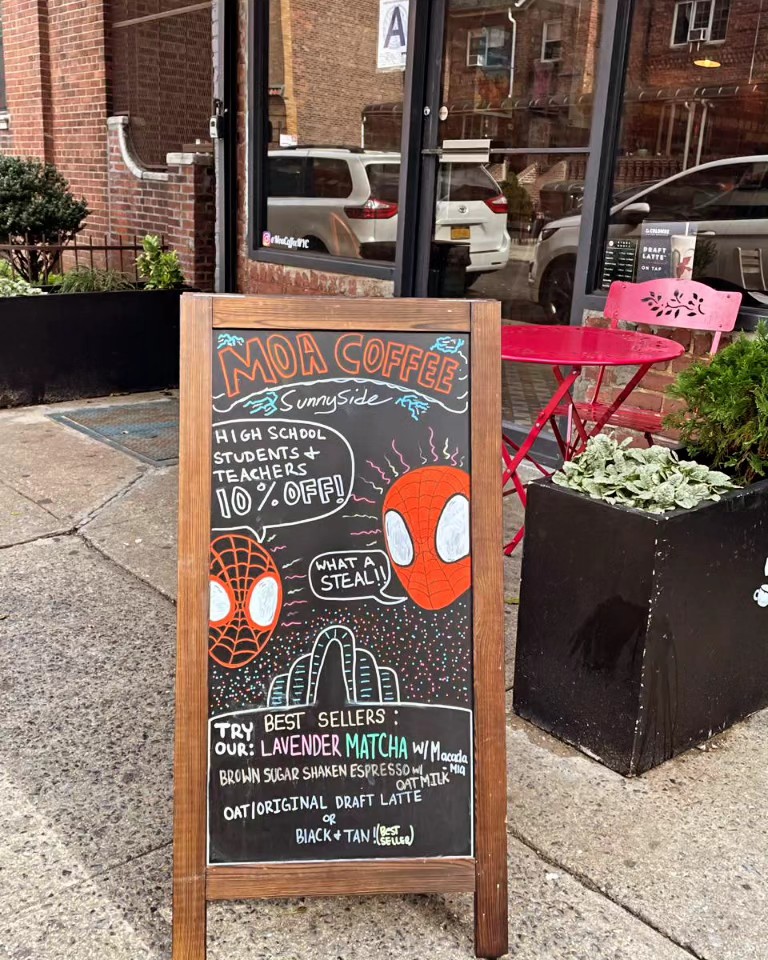 A
@MoaCoffeeNYC
LA COLOMBE
DRAFT
LATTE
ON TAP
MOA COFFEE
SunnySide
HIGH SCHOOL
STUDENTS +
TEACHERS
10% OFF!
WHAT A
STEAL!!
TRY
OUR:
BEST SELLERS:
LAVENDER MATCHA W/ Macada
-MIA
BROWN SUGAR SHAKEN ESPRESSO W/
OAT MILK
OAT/ORIGINAL DRAFT LATTE
OR
BLACK + TAN! (BEST
SELLER)